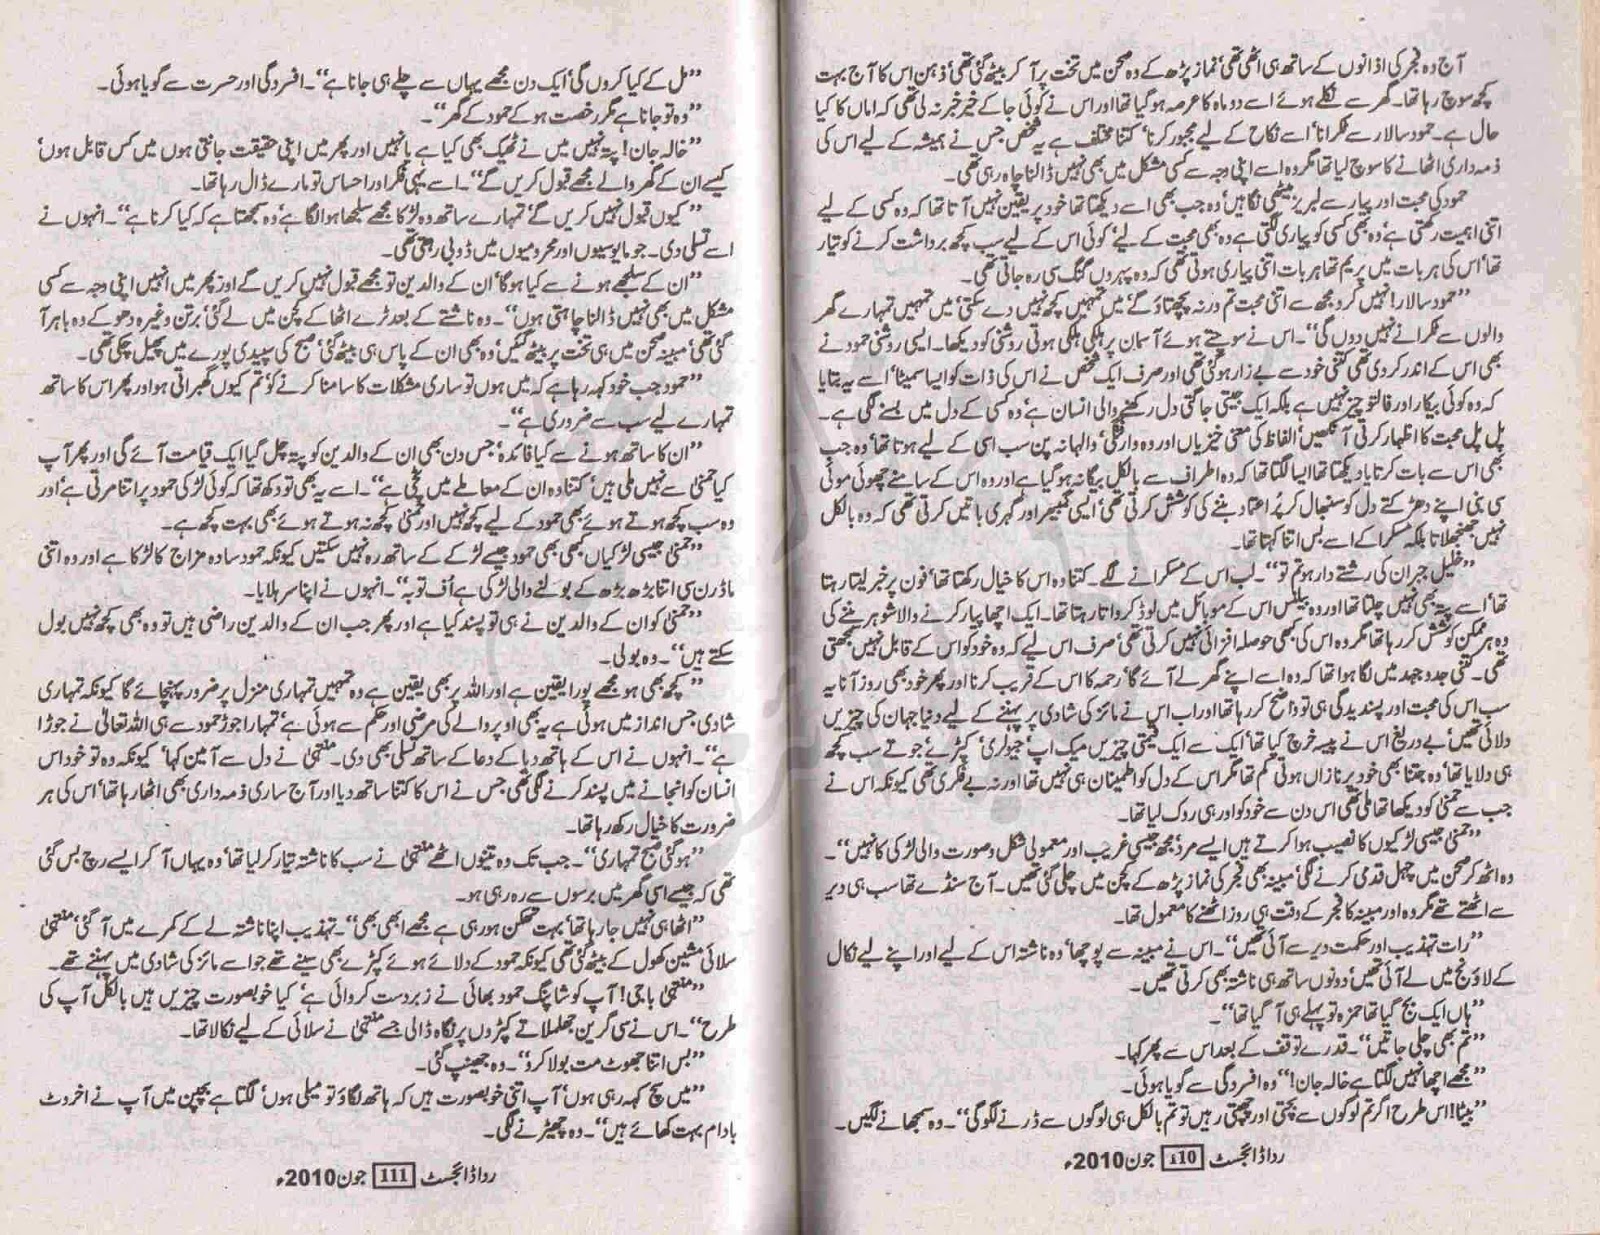 آج وہ فجر کی اذانوں کے ساتھ ہی اٹھی تھی‘ نماز پڑھ کے وہ صحن میں تخت پر آ کر بیٹھ گئی تھی‘ ذہن اس کا آج بہت
کچھ سوچ رہا تھا۔ گھر سے نکلے ہوئے اسے دو ماہ کا عرصہ ہو گیا تھا اور اس نے کوئی جا کے خیر خبر نہ لی تھی کہ اماں کا کیا
حال ہے۔ حمود سالار سے ٹکرانا‘ اسے نکاح کے لیے مجبور کرنا‘ کتنا مختلف ہے یہ شخص جس نے ہمیشہ کے لیے اس کی
ذمہ داری اٹھانے کا سوچ لیا تھا مگر وہ اسے اپنی وجہ سے کسی مشکل میں بھی نہیں ڈالنا چاہ رہی تھی۔
حمود کی محبت اور پیار سے لبریز میٹھی نگاہیں‘ وہ جب بھی اسے دیکھتا تھا خود پر یقین نہیں آتا تھا کہ وہ کسی کے لیے
اتنی اہمیت رکھتی ہے‘ وہ بھی کسی کو پیاری لگتی ہے وہ بھی محبت کے لیے‘ کوئی اس کے لیے سب کچھ برداشت کرنے کو تیار
تھا‘ اس کی ہر بات میں پریم تھا ہر بات اتنی پیاری ہوتی تھی کہ وہ پہروں گنگ سی رہ جاتی تھی۔
”حمود سالار! نہیں کرو مجھ سے اتنی محبت تم ورنہ پچھتاؤ گے‘ میں تمہیں کچھ نہیں دے سکتی‘ میں تمہیں تمہارے گھر
والوں سے ٹکرانے نہیں دوں گی“۔ اس نے سوچتے ہوئے آسمان پر ہلکی ہلکی ہوتی روشنی کو دیکھا۔ ایسی روشنی حمود نے
بھی اس کے اندر کر دی تھی کتنی خود سے بے زار ہو گئی تھی اور صرف ایک شخص نے اس کی ذات کو ایسا سمیٹا‘ اسے یہ بتایا
کہ وہ کوئی بیکار اور فالتو چیز نہیں ہے بلکہ ایک جیتی جاگتی دل رکھنے والی انسان ہے‘ وہ کسی کے دل میں بسنے لگی ہے۔
پل پل محبت کا اظہار کرتی آنکھیں‘ الفاظ کی معنی خیزیاں اور وہ وارفتگی‘ والہانہ پن سب اسی کے لیے ہوتا تھا‘ وہ جب
بھی اس سے بات کرتا یا دیکھتا تھا ایسا لگتا تھا کہ وہ اطراف سے بالکل بیگانہ ہو گیا ہے اور وہ اس کے سامنے چھوئی موئی
سی بنی اپنے دھڑکتے دل کو سنبھال کر پُر اعتماد بننے کی کوشش کرتی تھی‘ ایسی گمبھیر اور گہری باتیں کرتی تھی کہ وہ بالکل
نہیں جھنجھلاتا بلکہ مسکرا کے اسے بس اتنا کہتا تھا۔
”خلیل جبران کی رشتے دار ہو تم تو“۔ لب اس کے مسکرانے لگے۔ کتنا وہ اس کا خیال رکھتا تھا‘ فون پر خبر لیتا رہتا
تھا‘ اسے پتہ بھی نہیں چلتا تھا اور وہ بیلنس اس کے موبائل میں لوڈ کرواتا رہتا تھا۔ ایک اچھا پیار کرنے والا شوہر بننے کی
وہ ہر ممکن کوشش کر رہا تھا مگر وہ اس کی کبھی حوصلہ افزائی نہیں کرتی تھی‘ صرف اس لیے کہ وہ خود کو اس کے قابل نہیں سمجھتی
تھی۔ کتنی جدوجہد میں لگا ہوا تھا کہ وہ اسے اپنے گھر لے آئے گا‘ رحمہ کا اس کے قریب کرنا اور پھر خود بھی روز آنا یہ
سب اس کی محبت اور پسندیدگی ہی تو واضح کر رہا تھا اور اب اس نے مائز کی شادی پر پہننے کے لیے دنیا جہان کی چیزیں
دلائی تھیں‘ بے دریغ اس نے پیسہ خرچ کیا تھا‘ ایک سے ایک قیمتی چیزیں میک اپ‘ جیولری‘ کپڑے‘ جوتے سب کچھ
ہی دلایا تھا‘ وہ جتنا بھی خود پر نازاں ہوتی کم تھا مگر اس کے دل کو اطمینان ہی نہیں تھا اور نہ بے فکری تھی کیونکہ اس نے
جب سے حمنیٰ کو دیکھا تھا ملی تھی اس دن سے خود کو اور ہی روک لیا تھا۔
”حمنیٰ جیسی لڑکیوں کا نصیب ہوا کرتے ہیں ایسے مرد‘ مجھ جیسی غریب اور معمولی شکل و صورت والی لڑکی کا نہیں“۔
وہ اٹھ کر صحن میں چہل قدمی کرنے لگی‘ مبینہ بھی فجر کی نماز پڑھ کے کچن میں چلی گئی تھیں۔ آج سنڈے تھا سب ہی دیر
سے اٹھتے تھے مگر وہ اور مبینہ کا فجر کے وقت ہی روز اٹھنے کا معمول تھا۔
”رات تہذیب اور حکمت دیر سے آئی تھیں“۔ اس نے مبینہ سے پوچھا‘ وہ ناشتہ اس کے لیے اور اپنے لیے نکال
کے لاؤنج میں لے آئی تھیں‘ دونوں ساتھ ہی ناشتہ بھی کرتی تھیں۔
”ہاں ایک بج گیا تھا حمزہ تو پہلے ہی آ گیا تھا“۔
”تم بھی چلی جاتیں“۔ قدرے توقف کے بعد اس سے پھر کہا۔
”مجھے اچھا نہیں لگتا ہے خالہ جان!“ وہ افسردگی سے گویا ہوئی۔
”بیٹا! اس طرح اگر تم لوگوں سے بچتی اور چھپتی رہیں تو تم بالکل ہی لوگوں سے ڈرنے لگو گی“۔ وہ سمجھانے لگیں۔
ردا ڈائجسٹ 110 جون 2010ء
”مل کے کیا کروں گی‘ ایک دن مجھے یہاں سے چلے ہی جانا ہے“۔ افسردگی اور حسرت سے گویا ہوئی۔
”وہ تو جانا ہے مگر رخصت ہو کے حمود کے گھر“۔
”خالہ جان! پتہ نہیں میں نے ٹھیک بھی کیا ہے یا نہیں اور پھر میں اپنی حقیقت جانتی ہوں میں کس قابل ہوں‘
کیسے ان کے گھر والے مجھے قبول کریں گے“۔ اسے یہی فکر اور احساس تو مارے ڈال رہا تھا۔
”کیوں قبول نہیں کریں گے‘ تمہارے ساتھ وہ لڑکا مجھے سلجھا ہوا لگا ہے‘ وہ سمجھتا ہے کہ کیا کرنا ہے“۔ انہوں نے
اسے تسلی دی۔ جو مایوسیوں اور محرومیوں میں ڈوبی رہتی تھی۔
”ان کے سلجھے ہونے سے کیا ہوگا‘ ان کے والدین تو مجھے قبول نہیں کریں گے اور پھر میں انہیں اپنی وجہ سے کسی
مشکل میں بھی نہیں ڈالنا چاہتی ہوں“۔ وہ ناشتے کے بعد ٹرے اٹھا کے کچن میں لے گئی‘ برتن وغیرہ دھو کے وہ باہر آ
گئی تھی‘ مبینہ صحن میں ہی تخت پر بیٹھ گئیں‘ وہ بھی ان کے پاس ہی بیٹھ گئی‘ صبح کی سپیدی پورے میں پھیل چکی تھی۔
”حمود جب خود کہہ رہا ہے کہ میں ہوں تو ساری مشکلات کا سامنا کرنے کو‘ تم کیوں گھبراتی ہو اور پھر اس کا ساتھ
تمہارے لیے سب سے ضروری ہے“۔
”ان کا ساتھ ہونے سے کیا فائدہ‘ جس دن بھی ان کے والدین کو پتہ چل گیا ایک قیامت آئے گی اور پھر آپ
کیا حمنیٰ سے نہیں ملی ہیں‘ کتنا وہ ان کے معاملے میں پچی ہے“۔ اسے یہ بھی تو دکھ تھا کہ کوئی لڑکی حمود پر اتنا مرتی ہے‘ اور
وہ سب کچھ ہوتے ہوئے بھی حمود کے لیے کچھ نہیں اور حمنیٰ کچھ نہ ہوتے ہوئے بھی بہت کچھ ہے۔
”حمنیٰ جیسی لڑکیاں کبھی بھی حمود جیسے لڑکے کے ساتھ رہ نہیں سکتیں کیونکہ حمود سادہ مزاج کا لڑکا ہے اور وہ اتنی
ماڈرن سی اتنا بڑھ بڑھ کے بولنے والی لڑکی ہے اُف توبہ“۔ انہوں نے اپنا سر ہلایا۔
”حمنیٰ کو ان کے والدین نے ہی تو پسند کیا ہے اور پھر جب ان کے والدین راضی ہیں تو وہ بھی کچھ نہیں بول
سکتے ہیں“۔ وہ بولی۔
”کچھ بھی ہو مجھے پورا یقین ہے اور اللہ پر بھی یقین ہے وہ تمہیں تمہاری منزل پر ضرور پہنچائے گا کیونکہ تمہاری
شادی جس انداز میں ہوئی ہے یہ بھی اوپر والے کی مرضی اور حکم سے ہوئی ہے‘ تمہارا جوڑ حمود سے ہی اللہ تعالیٰ نے جوڑا
ہے“۔ انہوں نے اس کے ہاتھ دبا کے دعا کے ساتھ تسلی بھی دی۔ منتہیٰ نے دل سے آمین کہا‘ کیونکہ وہ تو خود اس
انسان کو انجانے میں پسند کرنے لگی تھی جس نے اس کا کتنا ساتھ دیا اور آج ساری ذمہ داری بھی اٹھا رہا تھا‘ اس کی ہر
ضرورت کا خیال رکھ رہا تھا۔
”ہو گئی صبح تمہاری“۔ جب تک وہ تینوں اٹھے منتہیٰ نے سب کا ناشتہ تیار کر لیا تھا‘ وہ یہاں آ کر ایسے رچ بس گئی
تھی کہ جیسے اسی گھر میں برسوں سے رہ رہی ہو۔
”اٹھا ہی نہیں جا رہا تھا‘ بہت تھکن ہو رہی ہے مجھے ابھی بھی“۔ تہذیب اپنا ناشتہ لے کے کمرے میں آ گئی‘ منتہیٰ
سلائی مشین کھول کے بیٹھ گئی تھی کیونکہ حمود کے دلائے ہوئے کپڑے بھی سینے تھے جو اسے مائز کی شادی میں پہننے تھے۔
”منتہیٰ باجی! آپ کو شاپنگ حمود بھائی نے زبردست کروائی ہے‘ کیا خوبصورت چیزیں ہیں بالکل آپ کی
طرح“۔ اس نے سی گرین جھلملاتے کپڑوں پر نگاہ ڈالی جسے منتہیٰ نے سلائی کے لیے نکالا تھا۔
”بس اتنا جھوٹ مت بولا کرو“۔ وہ جھینپ گئی۔
”میں سچ کہہ رہی ہوں‘ آپ اتنی خوبصورت ہیں کہ ہاتھ لگاؤ تو میلی ہوں‘ لگتا ہے بچپن میں آپ نے اخروٹ
بادام بہت کھائے ہیں“۔ وہ چھیڑنے لگی۔
ردا ڈائجسٹ 111 جون 2010ء